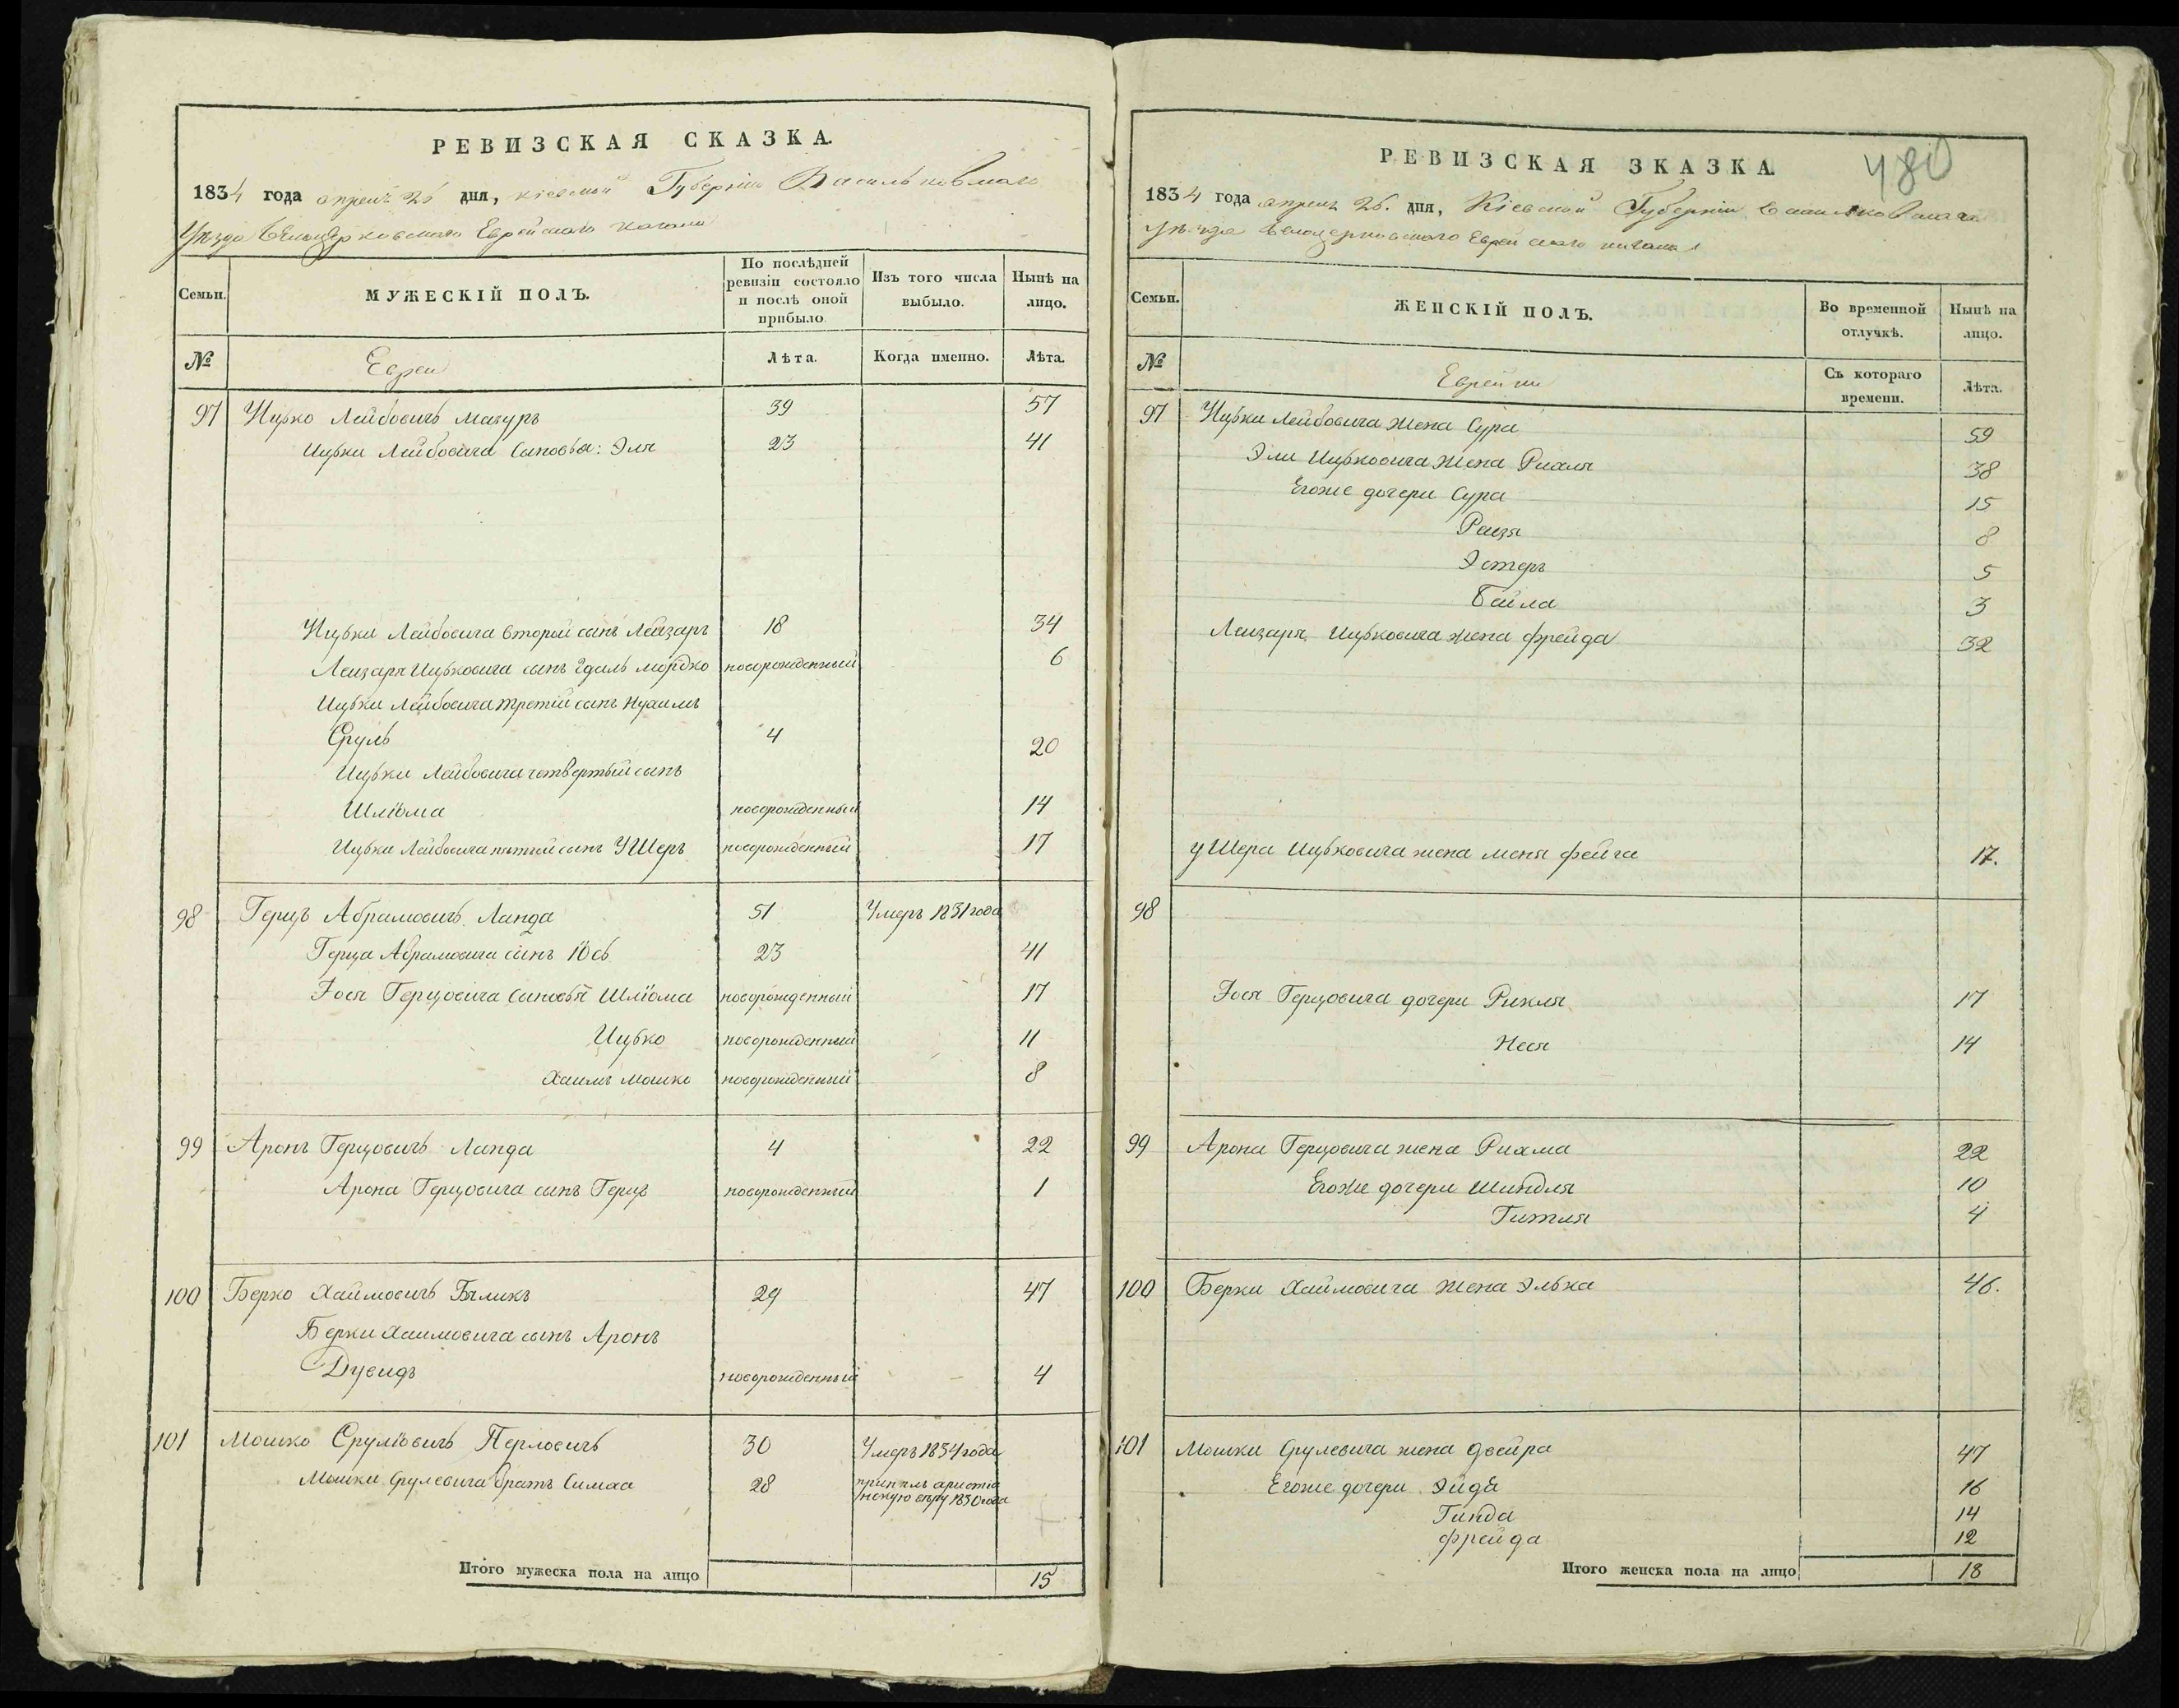 РЕВИЗСКАЯ СКАЗКА.
1834 года апреля 26 дня, Кіевской Губерніи Васильковскаго
Уѣзда Бѣлоцерковскаго Еврейскаго кагала
Семьи.
МУЖЕСКІЙ ПОЛЪ.
По послѣдней ревизіи состояло и послѣ оной прибыло.
Изъ того числа выбыло.
Нынѣ на лицо.
№
Евреи
Лѣта.
Когда именно.
Лѣта.
97 Ицько Лейбовичъ Мазуръ 39 57
Ицьки Лейбовича Сыновья: Эля 23 41
Ицьки Лейбовича второй сынъ Лейзаръ 18 34
Лейзаря Ицьковича сынъ Гдаль Мордко новорожденный 6
Ицьки Лейбовича третій сынъ Нухимъ
Сруль 4 20
Ицьки Лейбовича четвертый сынъ
Шлiома новорожденный 14
Ицьки Лейбовича пятый сынъ УШеръ новорожденный 17
98 Герцъ Абрамовичъ Ланда 51 Умеръ 1831 года
Герца Абрамовича сынъ Іось 23 41
Іося Герцовича сыновья Шлiома новорожденный 17
Ицько новорожденный 11
Хаимъ Мошко новорожденный 8
99 Аронъ Герцовичъ Ланда 4 22
Арона Герцовича сынъ Герцъ новорожденный 1
100 Берко Хаймовичъ Бѣликъ 29 47
Берки Хаимовича сынъ Аронъ
Дувидъ новорожденный 4
101 Мошко Срулiовичъ Перловичъ 30 Умеръ 1834 года
Мошки Срулевича братъ Симха 28 принялъ христіа
нскую вѣру 1830 года
Итого мужеска пола на лицо 15
480
РЕВИЗСКАЯ ЗКАЗКА.
1834 года апреля 26. дня, Кіевской Губерніи Васильковскаго
Уѣзда Белоцерковскаго Еврейскаго кагала
Семьи.
ЖЕНСКІЙ ПОЛЪ.
Во временной отлучкѣ.
Нынѣ на лицо.
№
Еврейки
Съ котораго времени.
Лѣта.
97 Ицьки Лейбовича жена Сура 59
Эли Ицьковича жена Рихля 38
Егоже дочери Сура 15
Раизя 8
Эстеръ 5
Байла 3
Лейзаря Ицьковича жена фрейда 32
уШера Ицьковича жена Меня фейга 17.
98
Іося Герцовича дочери Рикля 17
Неся 14
99 Арона Герцовича жена Рихма 22
Егоже дочери Шиндля 10
Гитля 4
100 Берки Хаймовича жена Элька 46.
101 Мошки Срулевича жена Двейра 47
Егоже дочери Эйдя 16
Гинда 14
фрейда 12
Итого женска пола на лицо 18